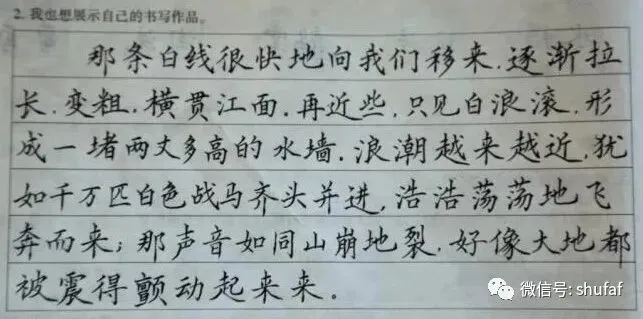 2. 我也想展示自己的书写作品。
那条白线很快地向我们移来.逐渐拉
长.变粗.横贯江面.再近些.只见白浪滚.形
成一堵两丈多高的水墙.浪潮越来越近.犹
如千万匹白色战马齐头并进,浩浩荡荡地飞
奔而来;那声音如同山崩地裂.好像大地都
被震得颤动起来来。
微信号: shufaf